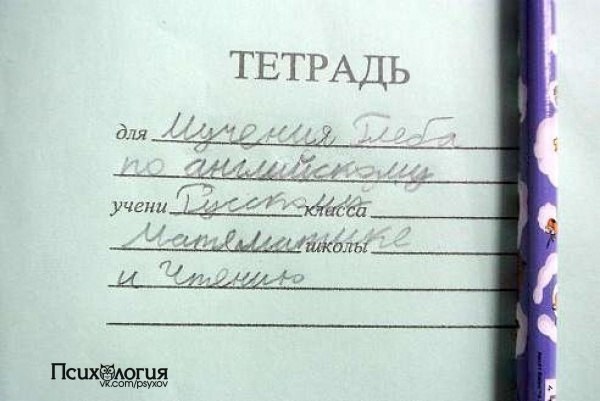 ТЕТРАДЬ
для Мучения Глеба
по английскому
учени Русскому класса
Математике школы
и Чтению
Психология
vk.com/psyxov